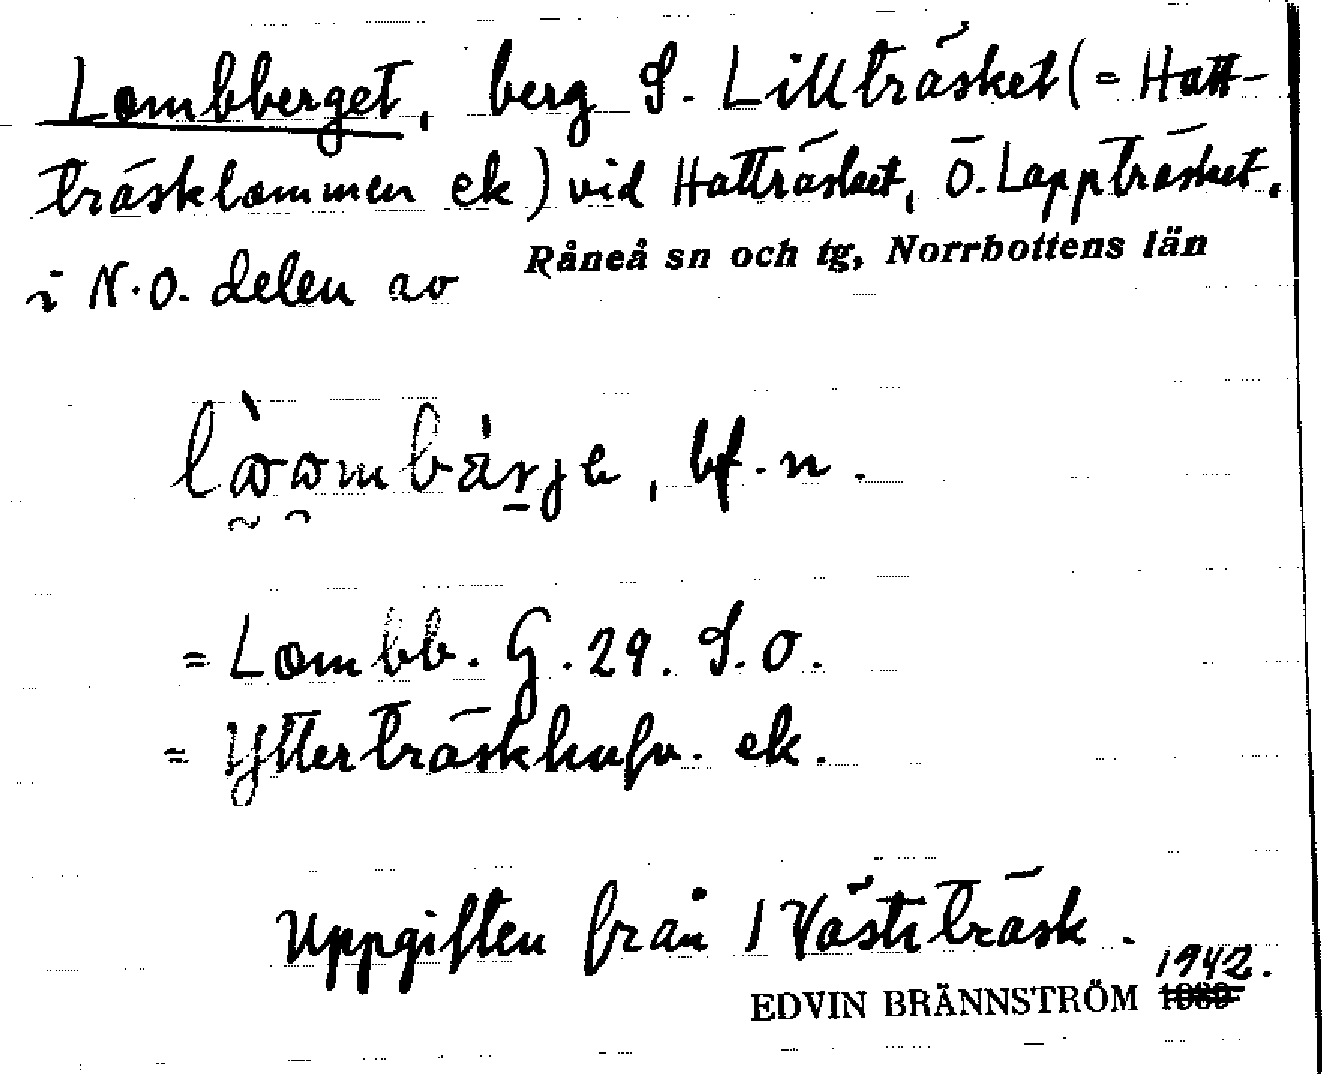 Lombberget, berg S. Lillträsket (= Hatt-
träsklommen ek) vid Hatträsket, Ö. Lappträsket,
i N.O. delen av Råneå sn och tg, Norrbottens län
bf. n.
= Lombb. G. 29. S.O.
= Ytterträskhufv. ek.
Uppgiften från 1 Västiträsk.
1942.
EDVIN BRÄNNSTRÖM 1939